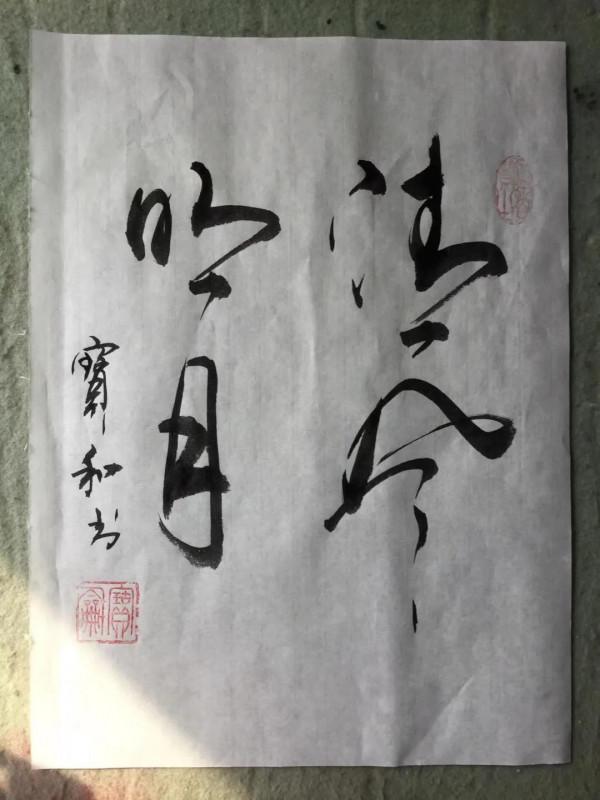 清風
明月
寶和书